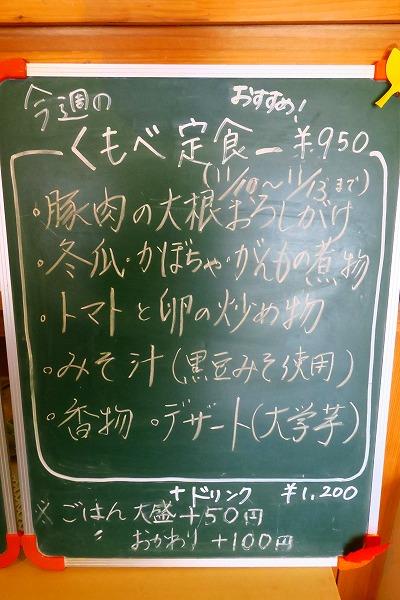 今週の
おすすめ!
くもべ定食 ¥950
(11/10～11/13まで)
・豚肉の大根おろしがけ
・冬瓜・かぼちゃ・がんもの煮物
・トマトと卵の炒め物
・みそ汁(黒豆みそ使用)
・香物 ・デザート(大学芋)
+ドリンク ¥1,200
※ごはん大盛+50円
〃 おかわり+100円